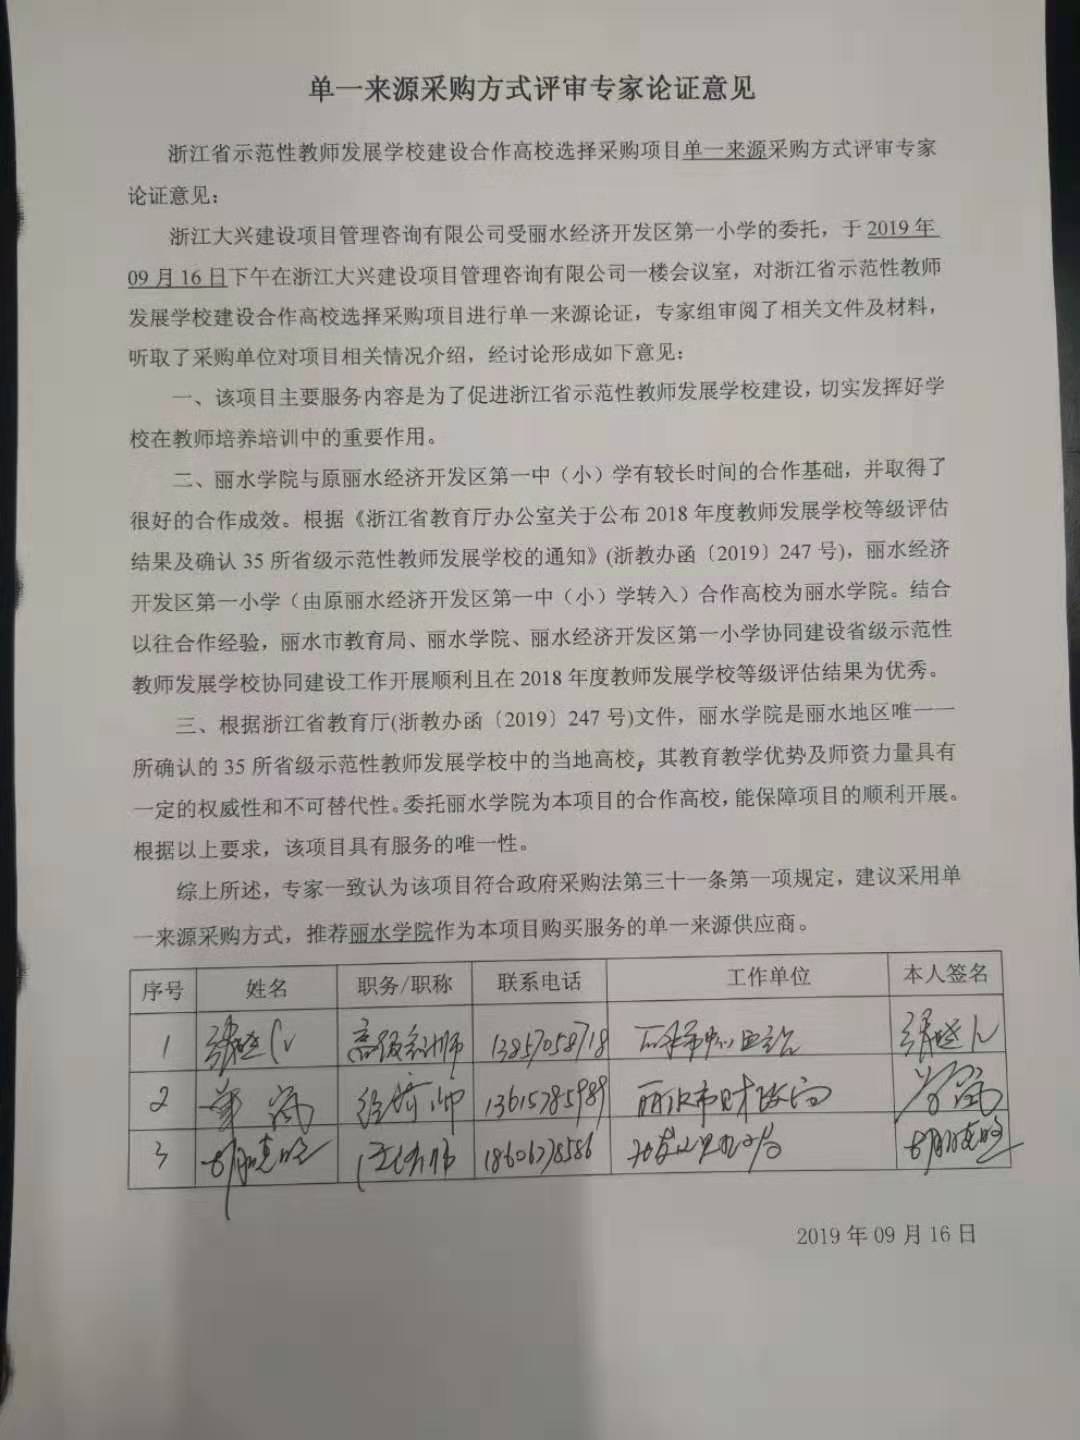 单一来源采购方式评审专家论证意见
浙江省示范性教师发展学校建设合作高校选择采购项目单一来源采购方式评审专家
论证意见：
浙江大兴建设项目管理咨询有限公司受丽水经济开发区第一小学的委托，于2019年
09月16日下午在浙江大兴建设项目管理咨询有限公司一楼会议室，对浙江省示范性教师
发展学校建设合作高校选择采购项目进行单一来源论证，专家组审阅了相关文件及材料，
听取了采购单位对项目相关情况介绍，经讨论形成如下意见：
一、该项目主要服务内容是为了促进浙江省示范性教师发展学校建设，切实发挥好学
校在教师培养培训中的重要作用。
二、丽水学院与原丽水经济开发区第一中（小）学有较长时间的合作基础，并取得了
很好的合作成效。根据《浙江省教育厅办公室关于公布2018年度教师发展学校等级评估
结果及确认35所省级示范性教师发展学校的通知》(浙教办函〔2019〕247号)，丽水经济
开发区第一小学（由原丽水经济开发区第一中（小）学转入）合作高校为丽水学院。结合
以往合作经验，丽水市教育局、丽水学院、丽水经济开发区第一小学协同建设省级示范性
教师发展学校协同建设工作开展顺利且在2018年度教师发展学校等级评估结果为优秀。
三、根据浙江省教育厅(浙教办函〔2019〕247号)文件，丽水学院是丽水地区唯一一
所确认的35所省级示范性教师发展学校中的当地高校，其教育教学优势及师资力量具有
一定的权威性和不可替代性。委托丽水学院为本项目的合作高校，能保障项目的顺利开展。
根据以上要求，该项目具有服务的唯一性。
综上所述，专家一致认为该项目符合政府采购法第三十一条第一项规定，建议采用单
一来源采购方式，推荐丽水学院作为本项目购买服务的单一来源供应商。
序号 姓名 职务/职称 联系电话 工作单位 本人签名
1 高级 师 13857058718
2 经济师 13615785989 丽水市财政局
3 胡晓 胡晓
2019年09月16日